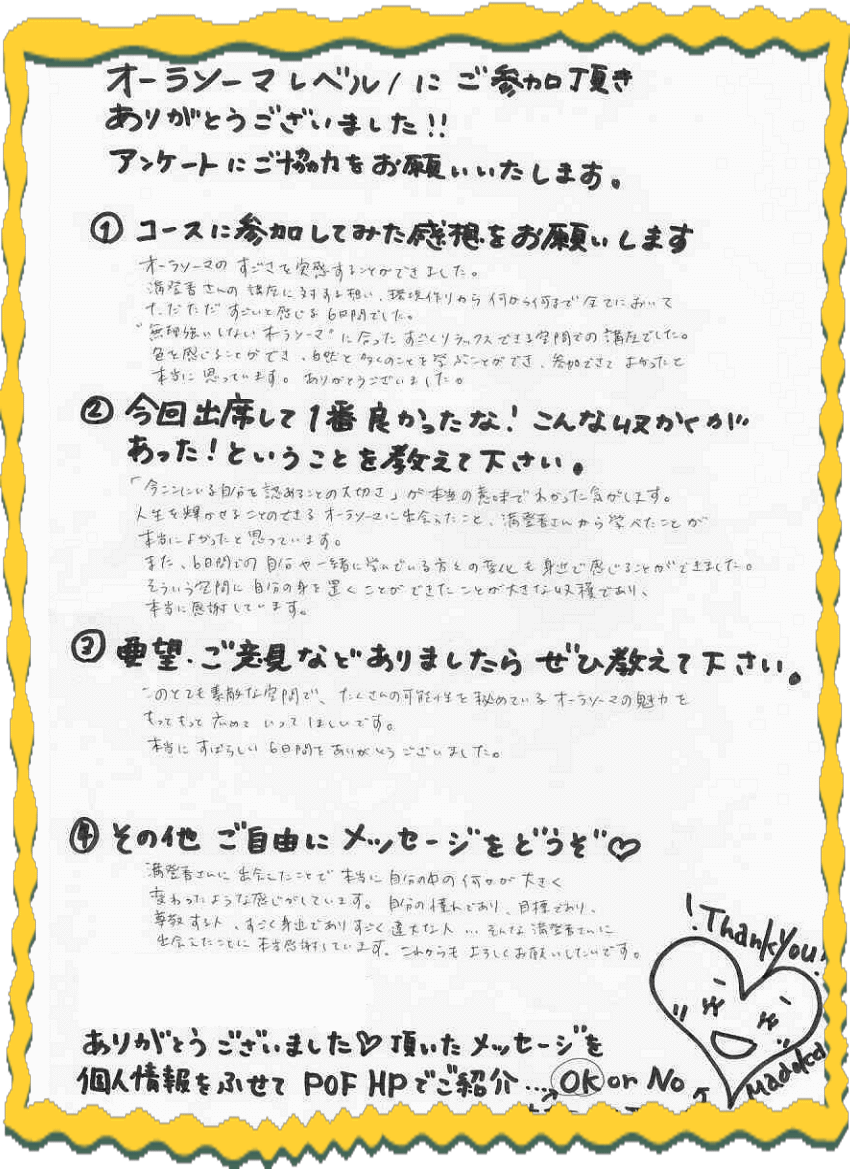 オーラソーマレベル1にご参加頂き
ありがとうございました!!
アンケートにご協力をお願いいたします。
① コースに参加してみた感想をお願いします
オーラソーマのすごさを実感することができました。
満登香さんの講座に対する想い、環境作りから何から何まで全てにおいて
ただただすごいと感じる6日間でした。
"無理強いしないオーラソーマ"に合ったすごくリラックスできる空間での講座でした。
色を感じることができ、自然と多くのことを学ぶことができ、参加できてよかったと
本当に思っています。ありがとうございました。
② 今回出席して1番良かったな!こんな収かくが
あった!ということを教えて下さい。
「今ここにいる自分を認めることの大切さ」が本当の意味でわかった気がします。
人生を輝かせることのできるオーラソーマに出会えたこと、満登香さんから学べたことが
本当によかったと思っています。
また、6日間での自分や一緒に学んでいる方々の変化も身近で感じることができました。
そういう空間に自分の身を置くことができたことが大きな収穫であり、
本当に感謝しています。
③ 要望・ご意見などありましたらぜひ教えて下さい。
このとても素敵な空間で、たくさんの可能性を秘めているオーラソーマの魅力を
もっともっと広めていってほしいです。
本当にすばらしい6日間をありがとうございました。
④ その他 ご自由にメッセージをどうぞ♡
満登香さんに出会えたことで本当に自分の中の何かが大きく
変わったような感じがしています。自分の憧れであり、目標であり、
尊敬する人、すごく身近でありすごく遠大な人…そんな満登香さんに
出会えたことに本当感謝しています。これからもよろしくお願いしたいです。
!ThankYou!
Madoka
ありがとうございました♡頂いたメッセージを
個人情報をふせて POF HPでご紹介…OK or No